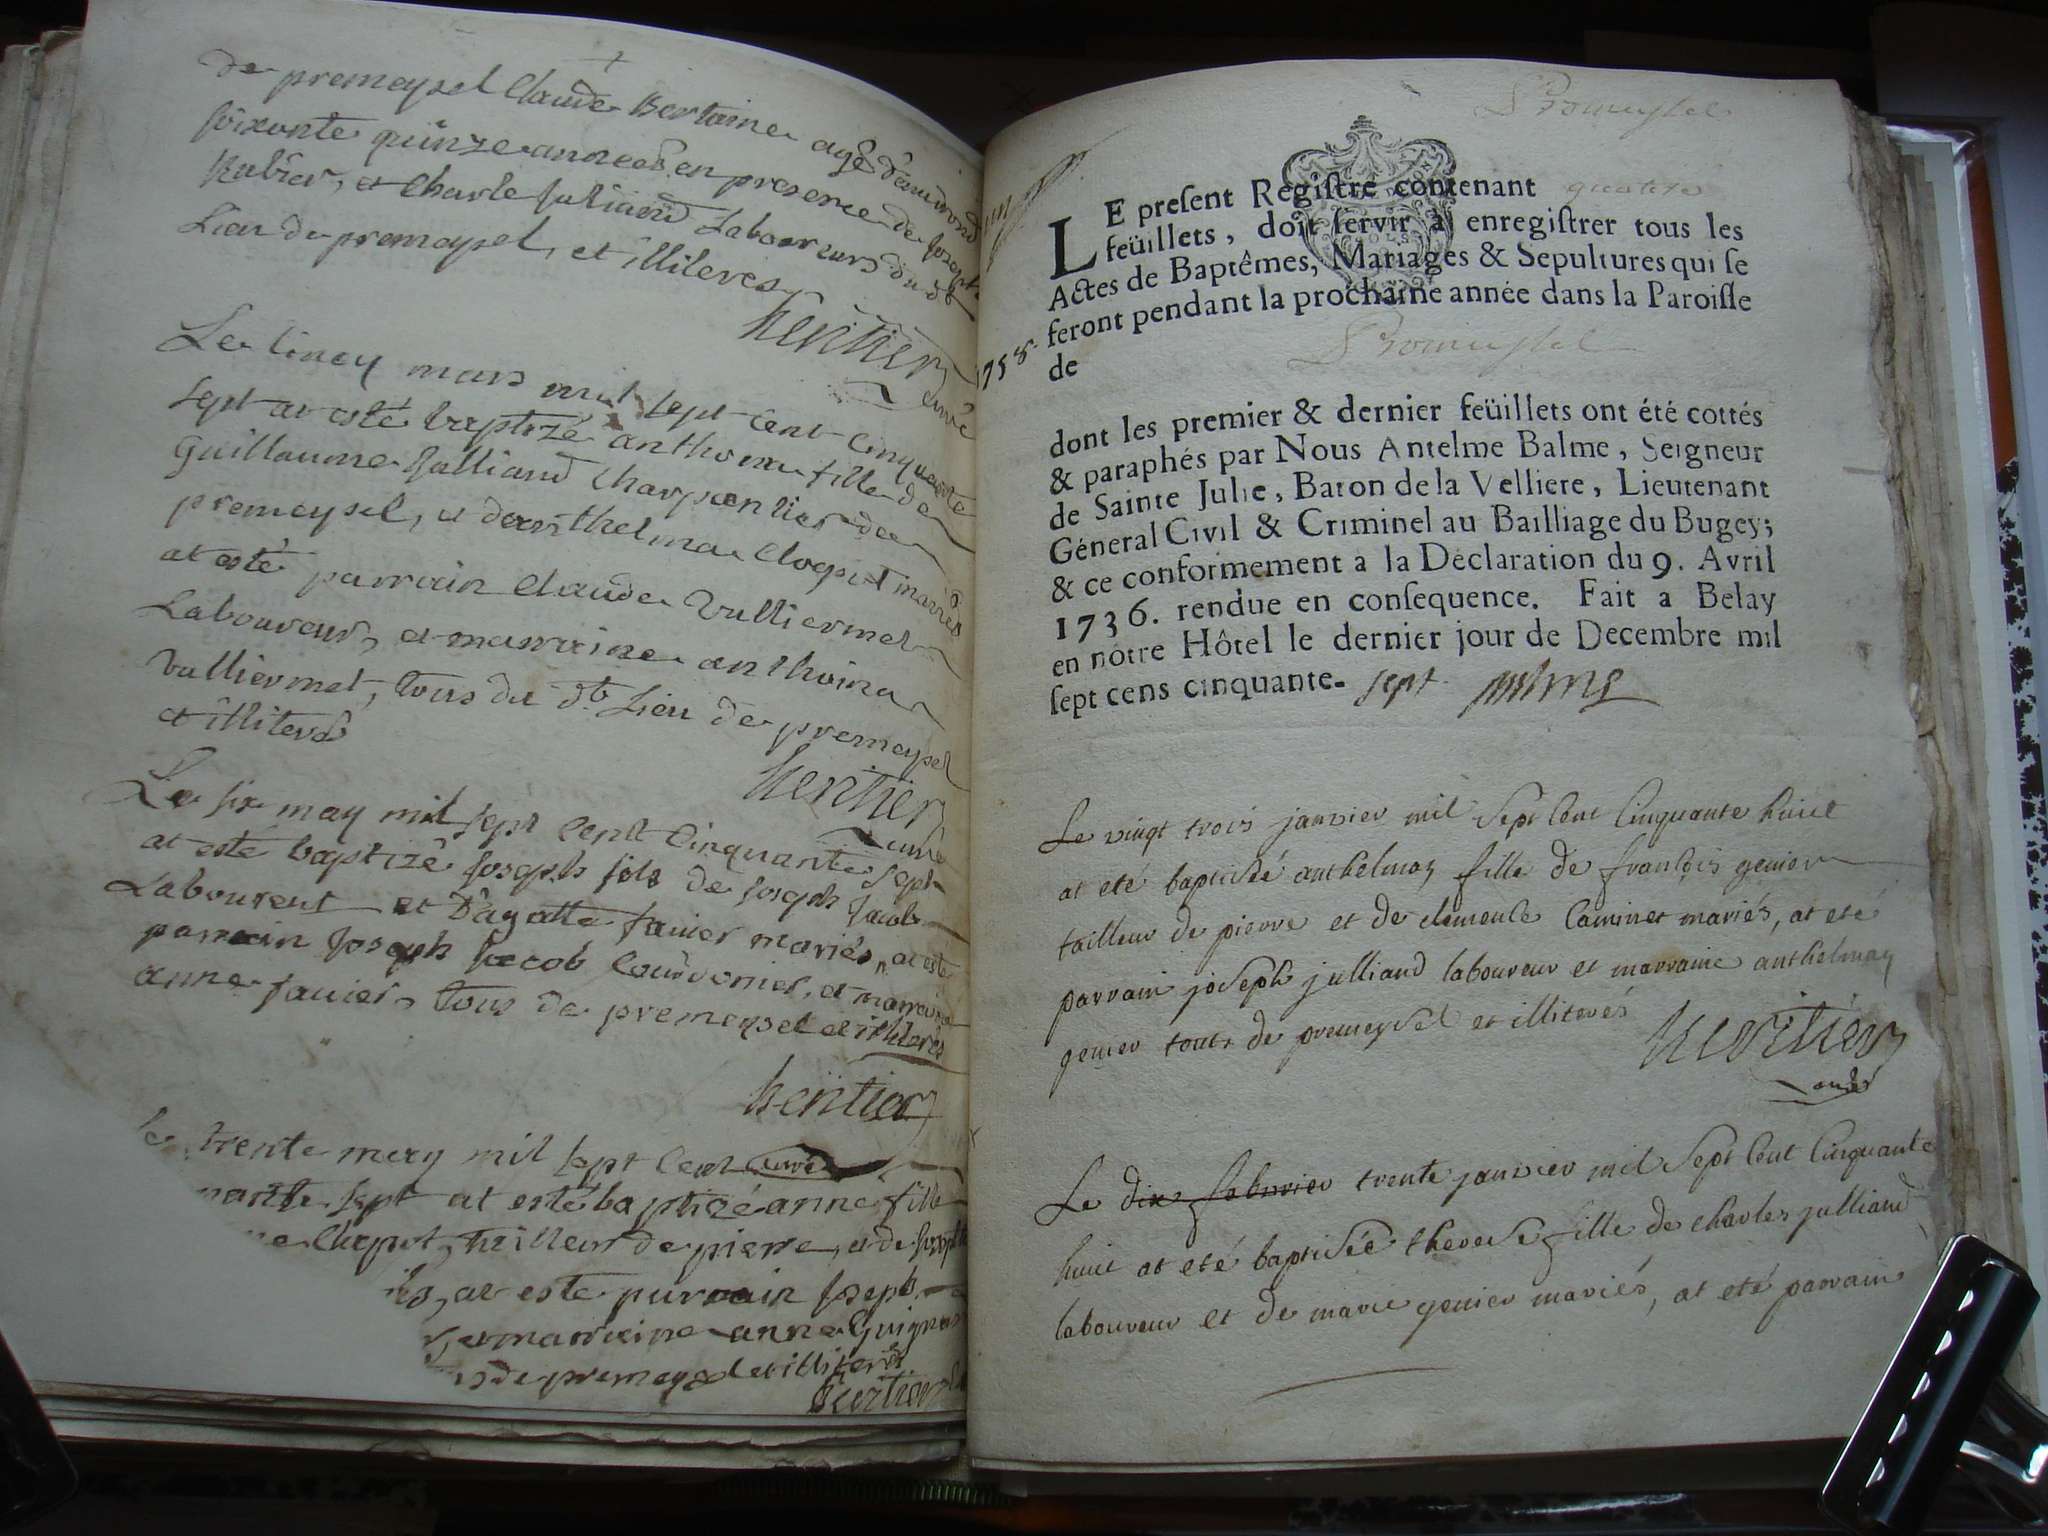 de premeysel Claude Bertaine agé d'environ
soixante quinze années en presence de Joseph
Rubier, et Charle Julliand Laboureurs du dt
Lieu de premeysel, et illiteres
heritier
curé
Le cincq mars mil sept cent cinquante
sept at esté baptizé anthoina fille de
Guillaume Julliand Charpentier de
premeysel, et danthelma Clopet mariés
at esté parrain Claude Vulliermet
Laboureur, et marraine anthoina
Vulliermet, tous du dt Lieu de premeysel
et illiterés
heritier
curé
Le six may mil sept cent cinquante sept
at esté baptizé Joseph fils de Joseph Jacob
Laboureur et D'agatte Favier mariés, at esté
parrain Joseph Jacob Courdonier, et marraine
anne Favier, tous de premeysel et illiterés
heritier
curé
Le trente mery mil sept cent
sept at esté baptizé anne fille
Chapot, tailleur de pierre, et de
at esté parrain Joseph
et marraine anne
de premeysel et illiterés
heritier
Premeysel
LE present Registre contenant quatre
feüillets, doit servir à enregistrer tous les
Actes de Baptêmes, Mariages & Sepultures qui se
feront pendant la prochaine année dans la Paroisse
1758
de Premeysel
dont les premier & dernier feüillets ont été cottés
& paraphés par Nous Antelme Balme, Seigneur
de Sainte Julie, Baron de la Velliere, Lieutenant
Géneral Civil & Criminel au Bailliage du Bugey;
& ce conformement a la Déclaration du 9. Avril
1736. rendue en consequence. Fait a Belay
en notre Hôtel le dernier jour de Decembre mil
sept cens cinquante- sept Balme
Le vingt trois janvier mil sept cent cinquante huict
at eté baptisée anthelmaz fille de françois genier
tailleur de pierre et de clemence Caminet mariés, at eté
parrain joseph julliand laboureur et marraine anthelmaz
genier touts de premeysel et illiterés
heritier
curé
Le dix febvrier trente janvier mil sept cent cinquante
huict at eté baptisée therese fille de charles julliand
laboureur et de marie genier mariés, at eté parrain